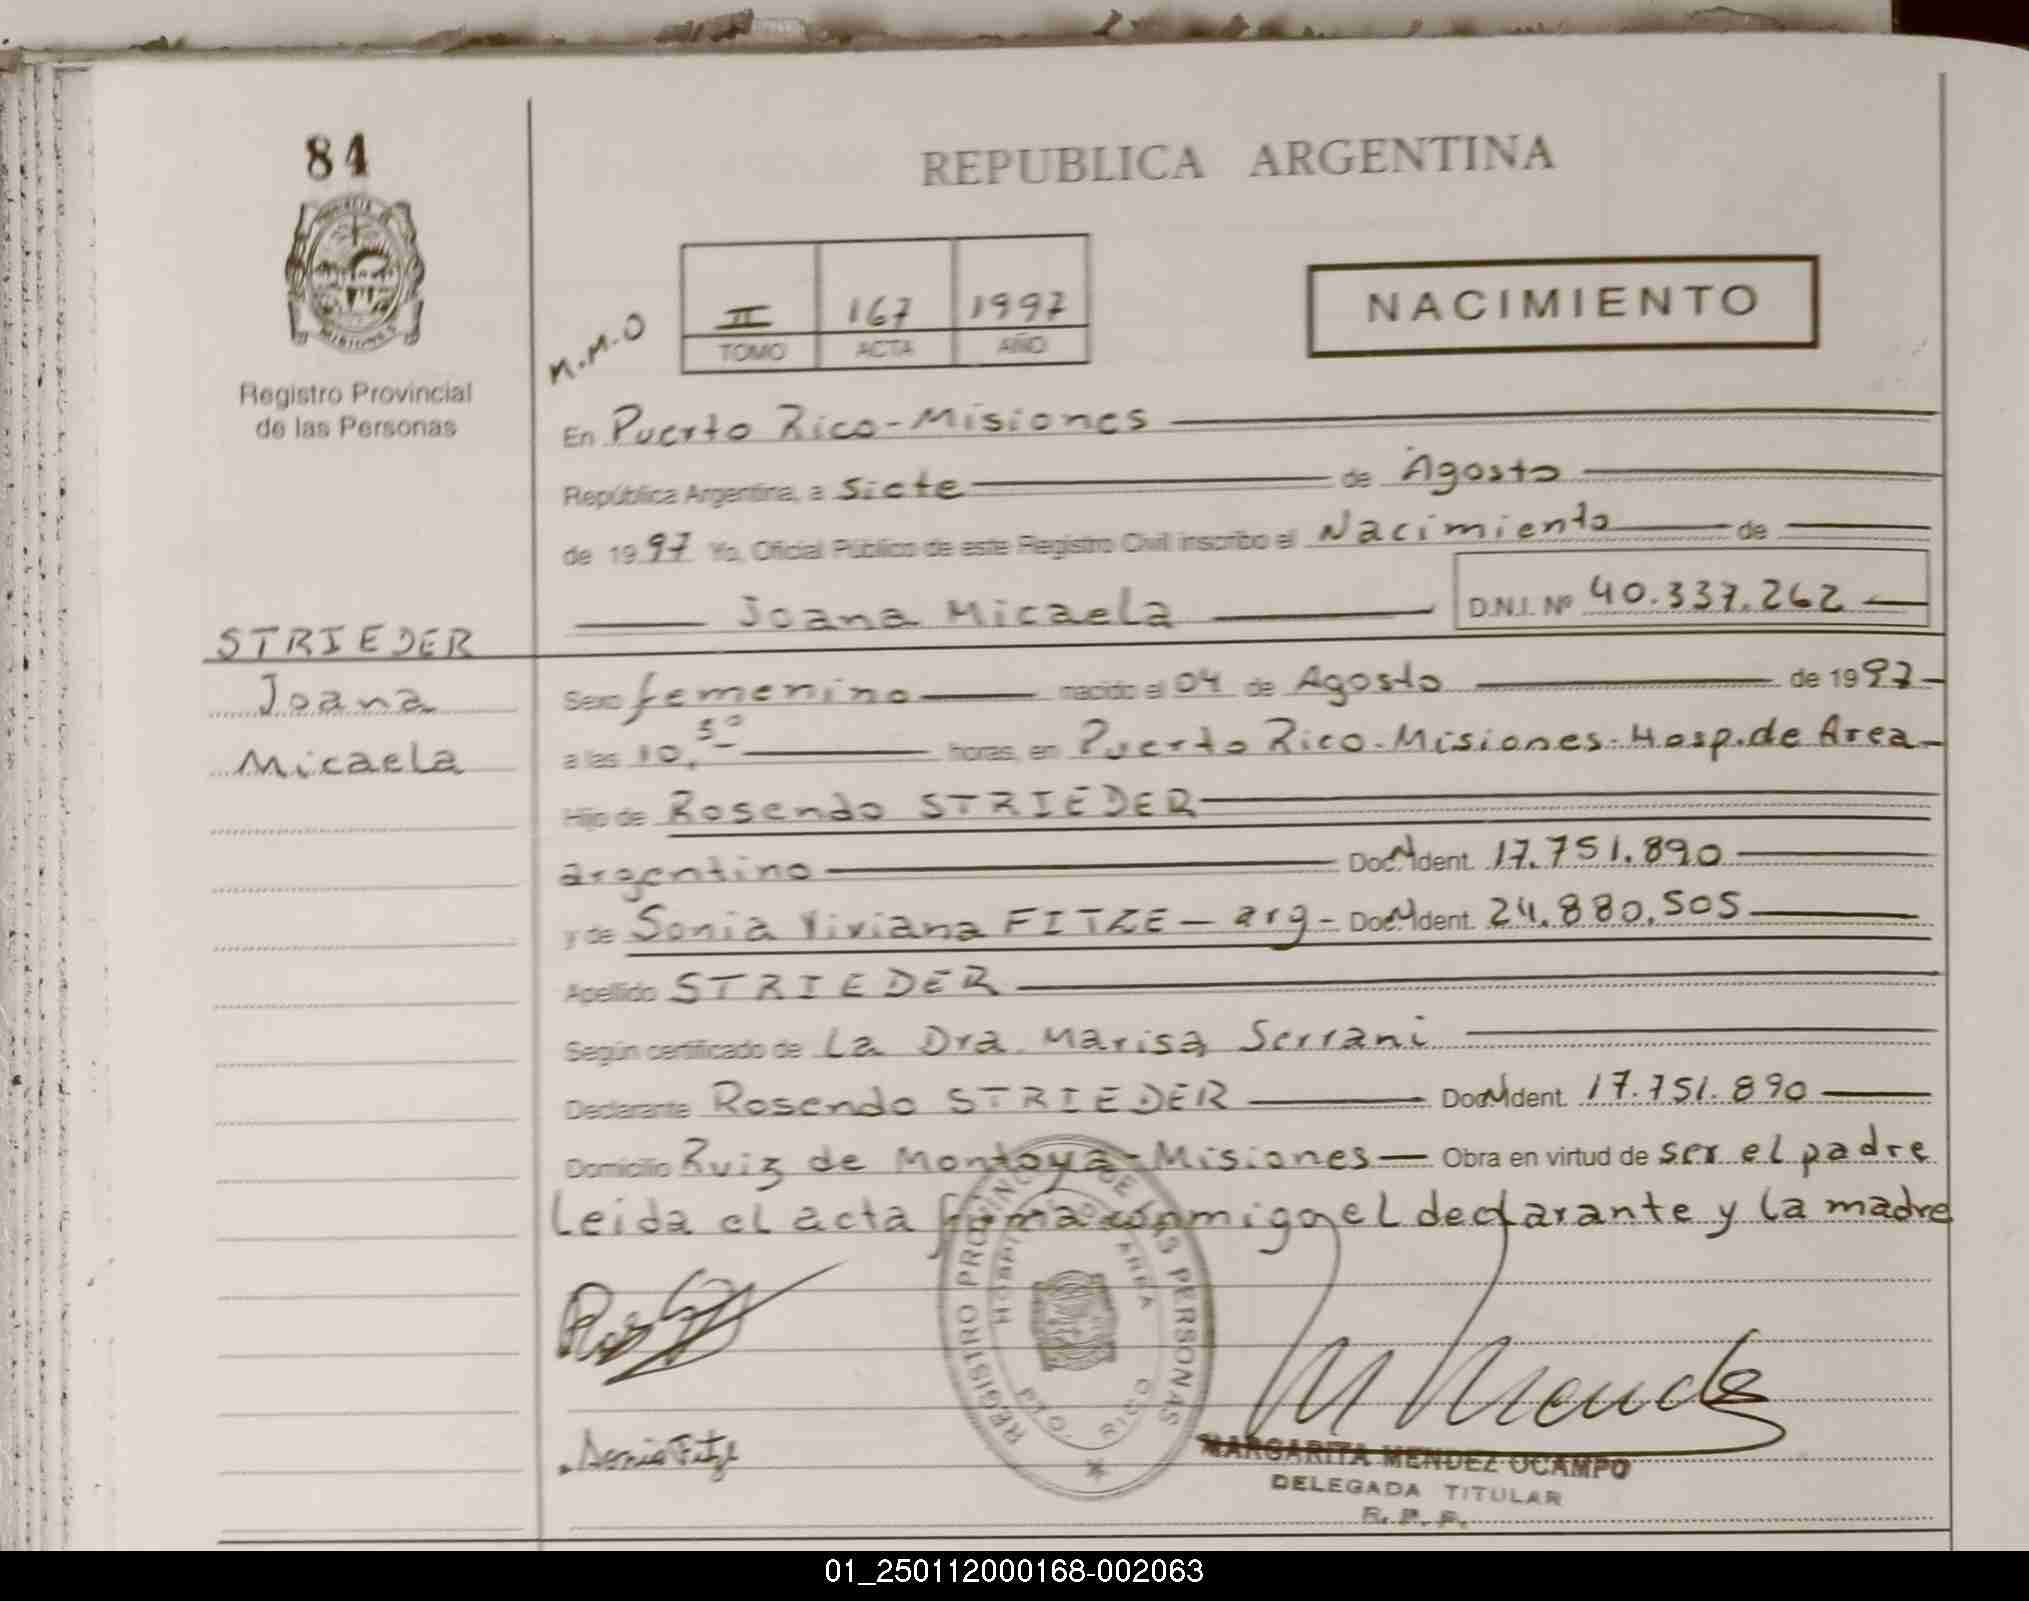 84
REPUBLICA ARGENTINA
PROVINCIA DE
MISIONES
Registro Provincial
de las Personas
M.M.O
II 167 1997
TOMO ACTA AÑO
NACIMIENTO
En Puerto Rico-Misiones
República Argentina, a siete de Agosto
de 1997 Yo, Oficial Público de este Registro Civil inscribo el Nacimiento de
Joana Micaela D.N.I. Nº 40.337.262
STRIEDER
Joana
Micaela
Sexo femenino nacido el 04 de Agosto de 1997
a las 10,50 horas, en Puerto Rico-Misiones-Hosp.de Area
Hijo de Rosendo STRIEDER
argentino Doc. Ident. 17.751.890
y de Sonia Viviana FITZE - arg - Doc. Ident. 24.880.505
Apellido STRIEDER
Según certificado de La Dra. Marisa Serrani
Declarante Rosendo STRIEDER Doc. Ident. 17.751.890
Domicilio Ruiz de Montoya-Misiones Obra en virtud de ser el padre
Leida el acta firma conmigo el declarante y la madre
REGISTRO PROVINCIAL DE LAS PERSONAS
HOSPITAL AREA
PTO. RICO
Sonia Fitze
M Mendez
MARGARITA MENDEZ OCAMPO
DELEGADA TITULAR
R. P. P.
01_250112000168-002063